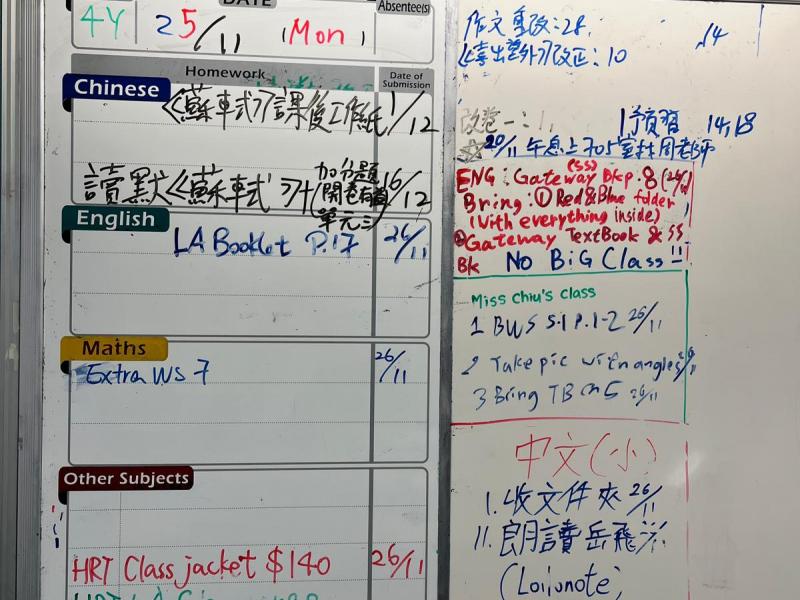 DATE
Absentee(s)
4Y 25/11 (Mon)
Homework
Date of Submission
Chinese
《蘇軾》課後工作紙 1/12
讀默《蘇軾》 加分題 16/12
開卷有益
單元三
English
LA Booklet P.17 26/11
Maths
Extra WS 7 26/11
Other Subjects
HRT Class jacket $140 26/11
作文重改:28, 14
改正:10
改卷一:
預習 14,18
☆20/11 午息上705室找周老師
ENG: Gateway Bkp. 8
(SS)
Bring: ① Red & Blue folder
(With everything inside)
② Gateway TextBook & SS
Bk No BiG Class !!
Miss Chiu's class
1 BWS S.1 P.1-2 26/11
2 Take pic with angles
3 Bring TB Ch 5 26/11
中文(小)
1. 收文件夾 26/11
11. 朗讀岳飛
(Loilonote,